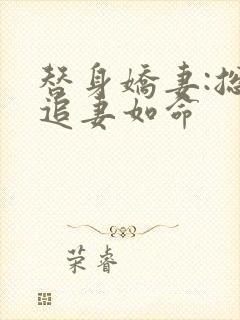 替身嬌妻:总
追妻如命
荣睿